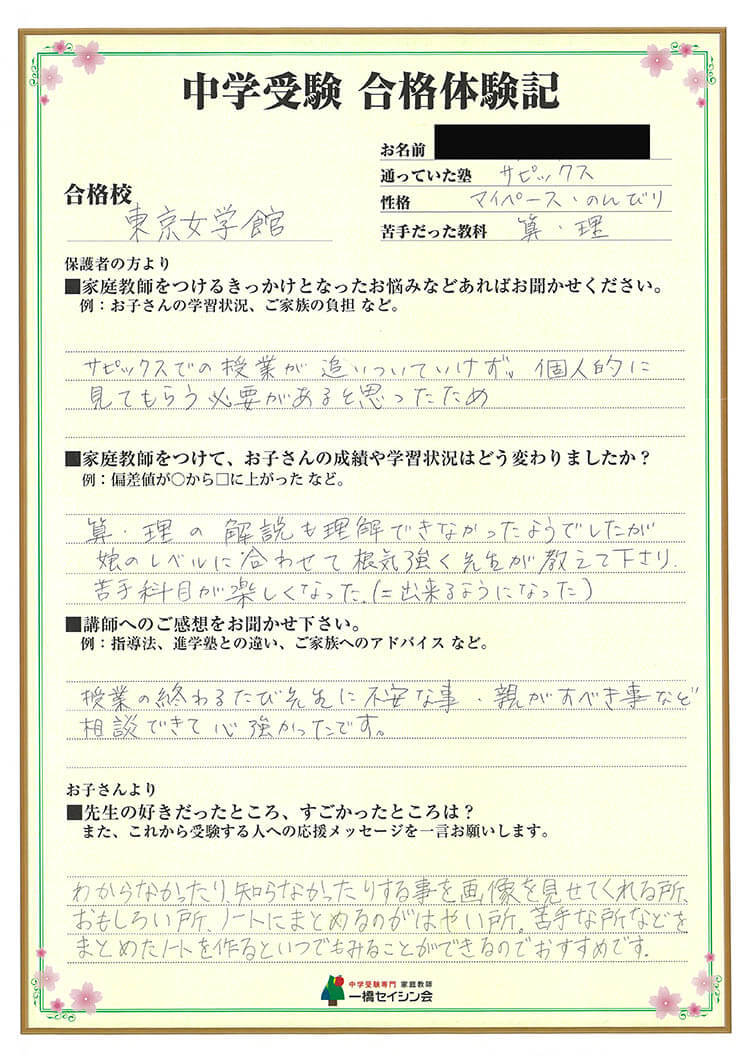 中学受験 合格体験記
お名前
通っていた塾 サピックス
性格 マイペース・のんびり
苦手だった教科 算・理
合格校
東京女学館
保護者の方より
■家庭教師をつけるきっかけとなったお悩みなどあればお聞かせください。
例：お子さんの学習状況、ご家族の負担 など。
サピックスでの授業が追いついていけず、個人的に
見てもらう必要があると思ったため
■家庭教師をつけて、お子さんの成績や学習状況はどう変わりましたか？
例：偏差値が○から□に上がった など。
算・理の解説も理解できなかったようでしたが
娘のレベルに合わせて根気強く先生が教えて下さり、
苦手科目が楽しくなった。(＝出来るようになった)
■講師へのご感想をお聞かせ下さい。
例：指導法、進学塾との違い、ご家族へのアドバイス など。
授業の終わるたび先生に不安な事・親がすべき事など
相談できて心強かったです。
お子さんより
■先生の好きだったところ、すごかったところは？
また、これから受験する人への応援メッセージを一言お願いします。
わからなかったり、知らなかったりする事を画像を見せてくれる所、
おもしろい所、ノートにまとめるのがはやい所。苦手な所などを
まとめたノートを作るといつでもみることができるのでおすすめです。
中学受験専門 家庭教師
一橋セイシン会